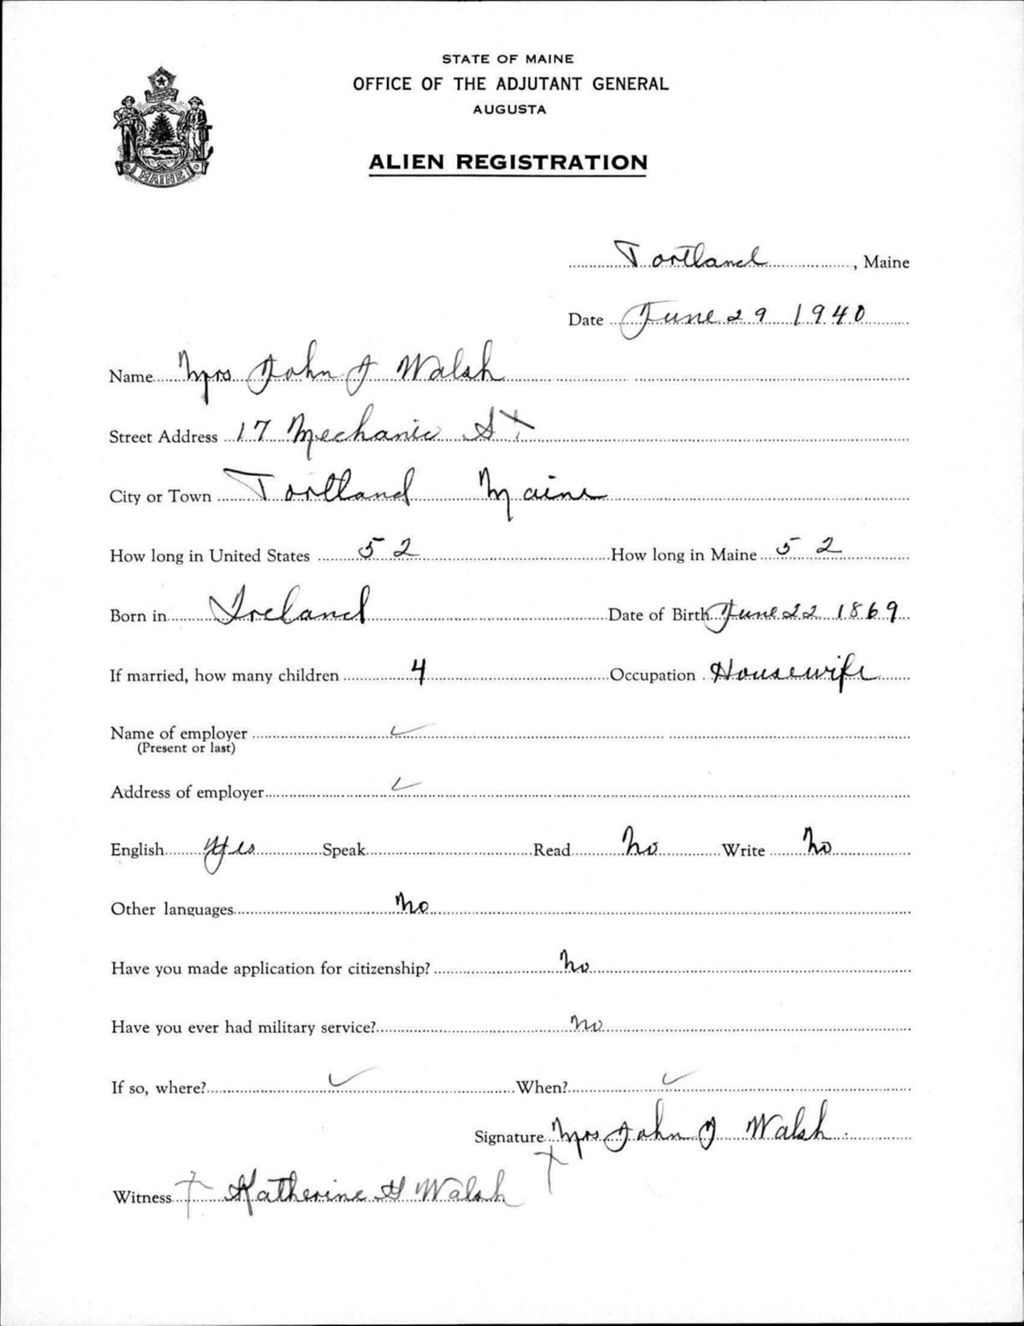 STATE OF MAINE
OFFICE OF THE ADJUTANT GENERAL
AUGUSTA
ALIEN REGISTRATION
MAINE
Portland, Maine
Date June 29 1940
Name Mrs John J Walsh
Street Address 17 Mechanic St
City or Town Portland Maine
How long in United States 52 How long in Maine 52
Born in Ireland Date of Birth June 22 1869
If married, how many children 4 Occupation Housewife
Name of employer
(Present or last)
Address of employer
English Yes Speak Read No Write No
Other languages No
Have you made application for citizenship? No
Have you ever had military service? No
If so, where? When?
Signature Mrs John J Walsh
Witness Katherine G Walsh